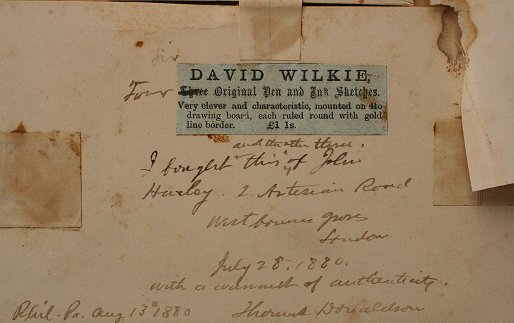 Sir
DAVID WILKIE,
Four Three Original Pen and Ink Sketches.
Very clever and characteristic, mounted on 4to
drawing board, each ruled round with gold
line border. £1 1s.
and the other three.
I bought "this" of John
Harley. 2 Artesian Road
Westbourne grove
London
July 28, 1880.
with a warranty of authenticity.
Phil-Pa. Aug 13th 1880 Thomas Donaldson